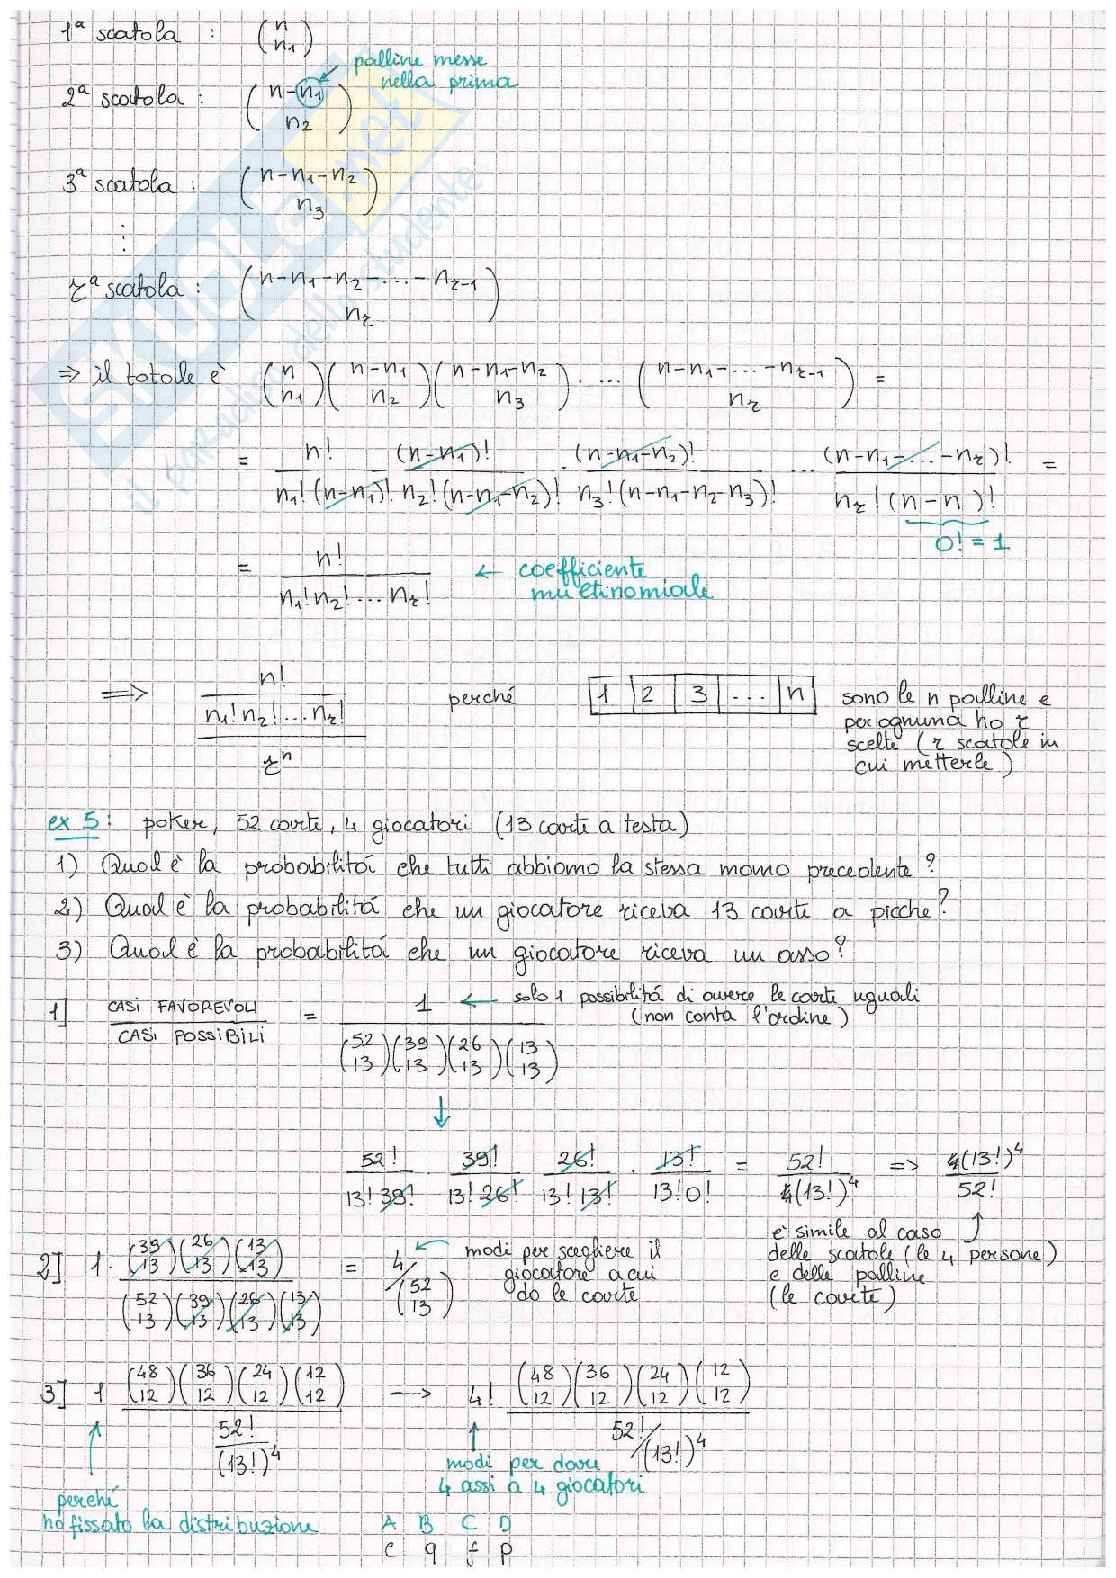 1ª scatola : (n n₁)
palline messe
nella prima
2ª scatola : (n-n₁ n₂)
3ª scatola : (n-n₁-n₂ n₃)
⋮
rª scatola : (n-n₁-n₂-...-n_{r-1} n_r)
⇒ il totale è (n n₁)(n-n₁ n₂)(n-n₁-n₂ n₃)· ... (n-n₁-...-n_{r-1} n_r) =
= n!/(n₁!(n-n₁)!) (n-n₁)!/(n₂!(n-n₁-n₂)!) · (n-n₁-n₂)!/(n₃!(n-n₁-n₂-n₃)!) ... (n-n₁-...-n_r)!/(n_r!(n-n)!) =
0! = 1
= n!/(n₁!n₂!...n_r!) ← coefficiente
multinomiale
⇒ (n!/(n₁!n₂!...n_r!))/rⁿ perché 1 2 3 ... n sono le n palline e
per ognuna ho r
scelte (r scatole in
cui metterle)
ex 5: poker, 52 carte, 4 giocatori (13 carte a testa)
1) Qual è la probabilitá che tutti abbiamo la stessa mano precedente?
2) Qual è la probabilitá che un giocatore riceva 13 carte a picche?
3) Qual è la probabilitá che un giocatore riceva un asso?
1] CASI FAVOREVOLI/CASI POSSIBILI = 1/((52 13)(39 13)(26 13)(13 13)) ← solo 1 possibilitá di avere le carte uguali
(non conta l'ordine)
↓
52!/(13!39!) · 39!/(13!26!) · 26!/(13!13!) · 13!/(13!0!) = 52!/(4(13!)⁴) => 4(13!)⁴/52!
è simile al caso
delle scatole (le 4 persone)
e delle palline
(le carte)
2] 1· ((39 13)(26 13)(13 13))/((52 13)(39 13)(26 13)(13 13)) = 4/(52 13) ← modi per scegliere il
giocatore a cui
do le carte
3] 1 ((48 12)(36 12)(24 12)(12 12))/(52!/(13!)⁴) --> 4! ((48 12)(36 12)(24 12)(12 12))/(52!/(13!)⁴)
perché
ho fissato la distribuzione
modi per dare
4 assi a 4 giocatori
A B C D
c q f p
SKUOLA.net
il paradiso dello studente